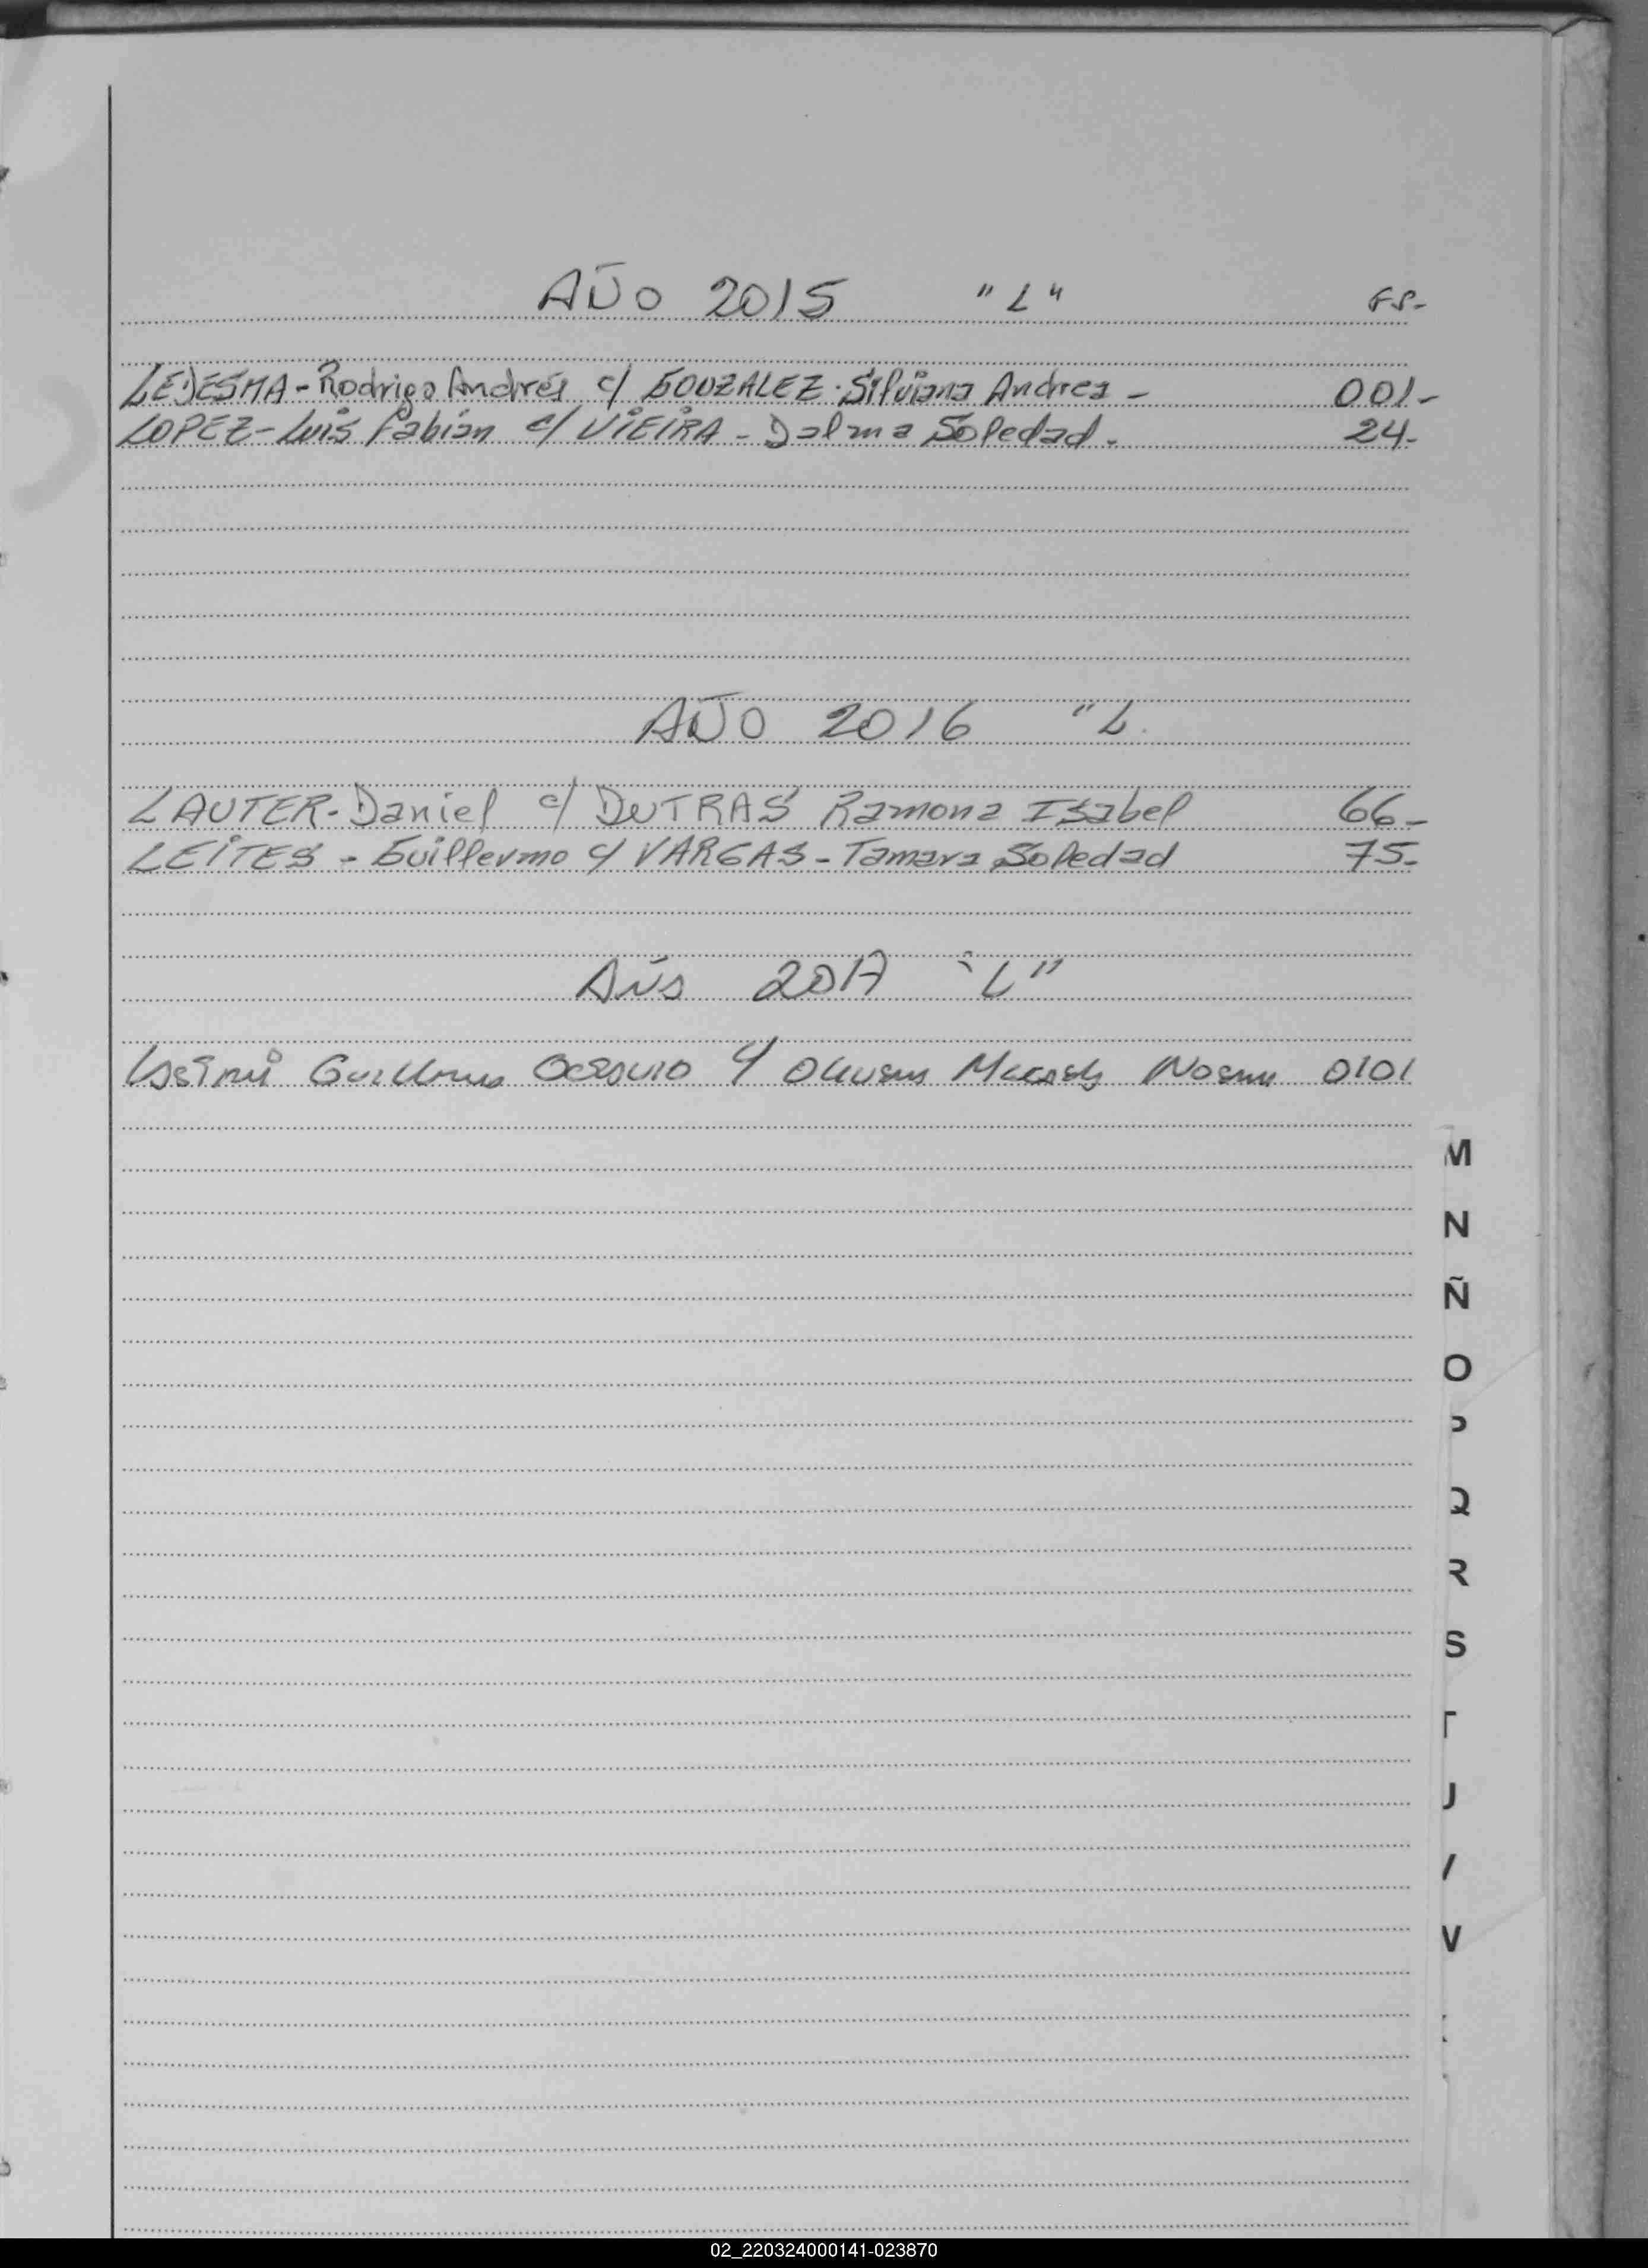 AÑO 2015 "L" FS-
LEDESMA-Rodrigo Andrés c/ GONZALEZ-Silviana Andrea - 001-
LOPEZ-Luis Fabián c/ VIEIRA - Dalma Soledad. 24-
AÑO 2016 "L.
LAUTER-Daniel c/ DUTRAS Ramona Isabel 66-
LEITES - Guillermo c/ VARGAS - Tamara Soledad 75-
Año 2017 "L"
Guillermo c/ 0101
M
N
Ñ
O
P
Q
R
S
T
U
V
W
02_220324000141-023870